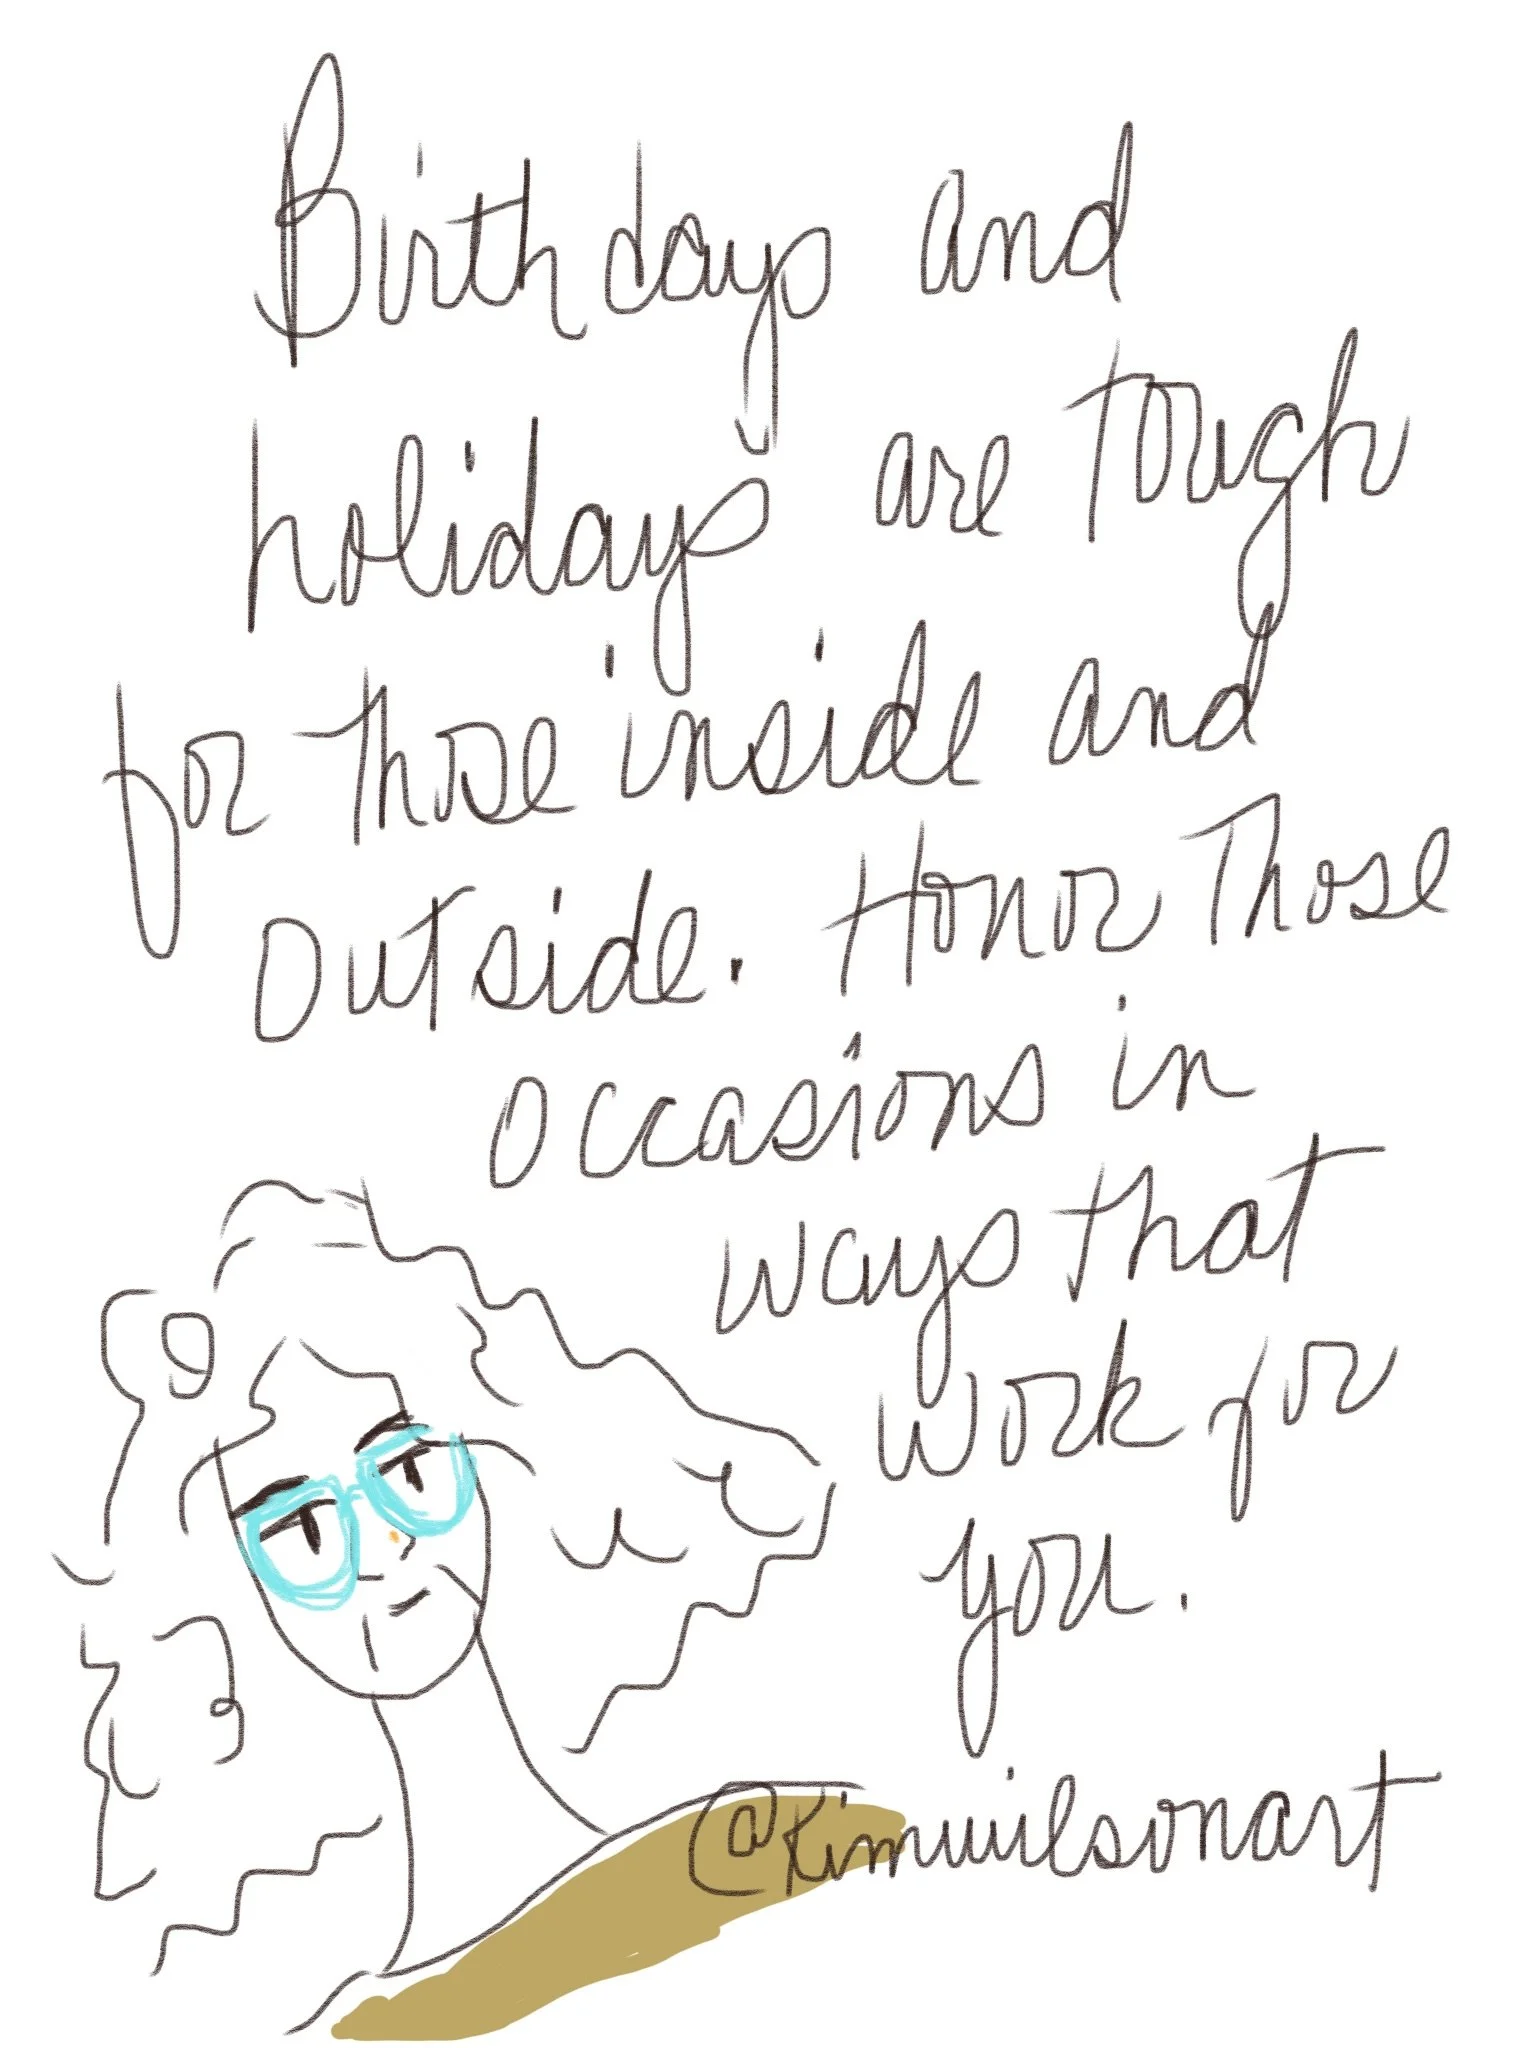 Birthdays and
holidays are tough
for those inside and
outside. Honor Those
occasions in
ways that
work for
you.
@Kimwilsonart